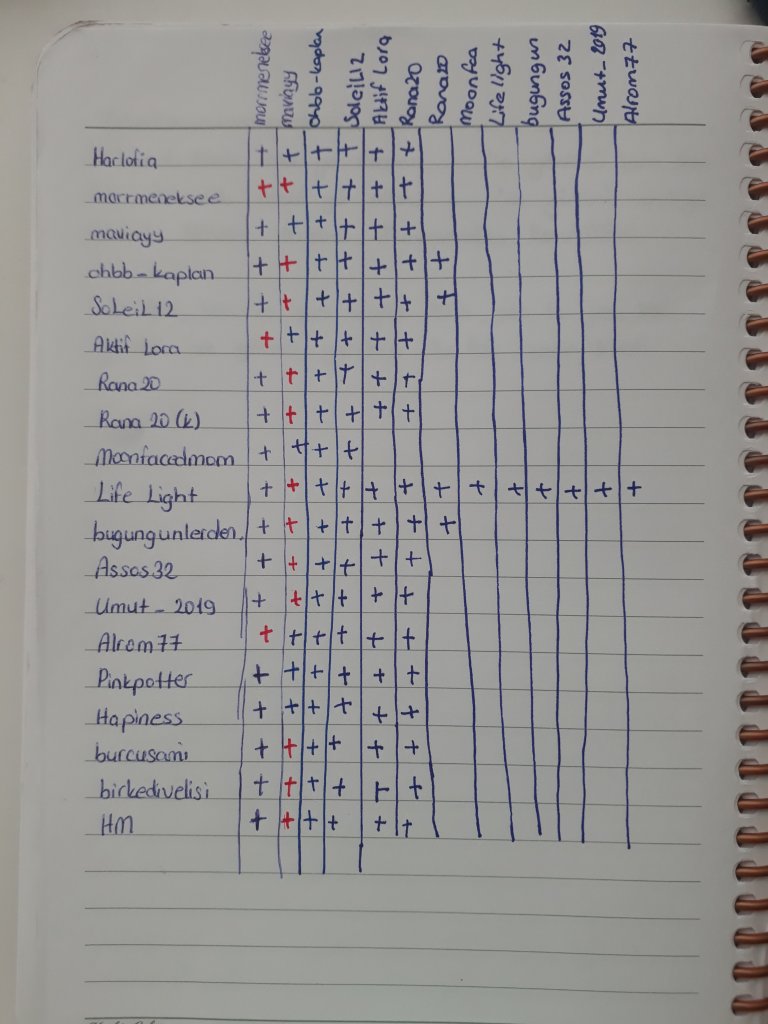 marrmeneksee maviayy ohbb-kaplan SoleiL12 Aktif Lora Rana20 Rana20 Moonfea Life light bugungun Assos 32 Umut-2019 Alrom77
Harlofia + + + + + +
marrmeneksee + + + + + +
maviayy + + + + + +
ohbb-kaplan + + + + + + +
SoleiL12 + + + + + + +
Aktif Lora + + + + + +
Rana20 + + + + + +
Rana 20 (k) + + + + + +
Moonfacedmom + + + +
Life Light + + + + + + + + + + + + +
bugungunlerden. + + + + + + +
Assos32 + + + + + +
Umut-2019 + + + + + +
Alrom77 + + + + + +
Pinkpotter + + + + + +
Hapiness + + + + + +
burcusami + + + + + +
birkedivelisi + + + + + +
HM + + + + + +